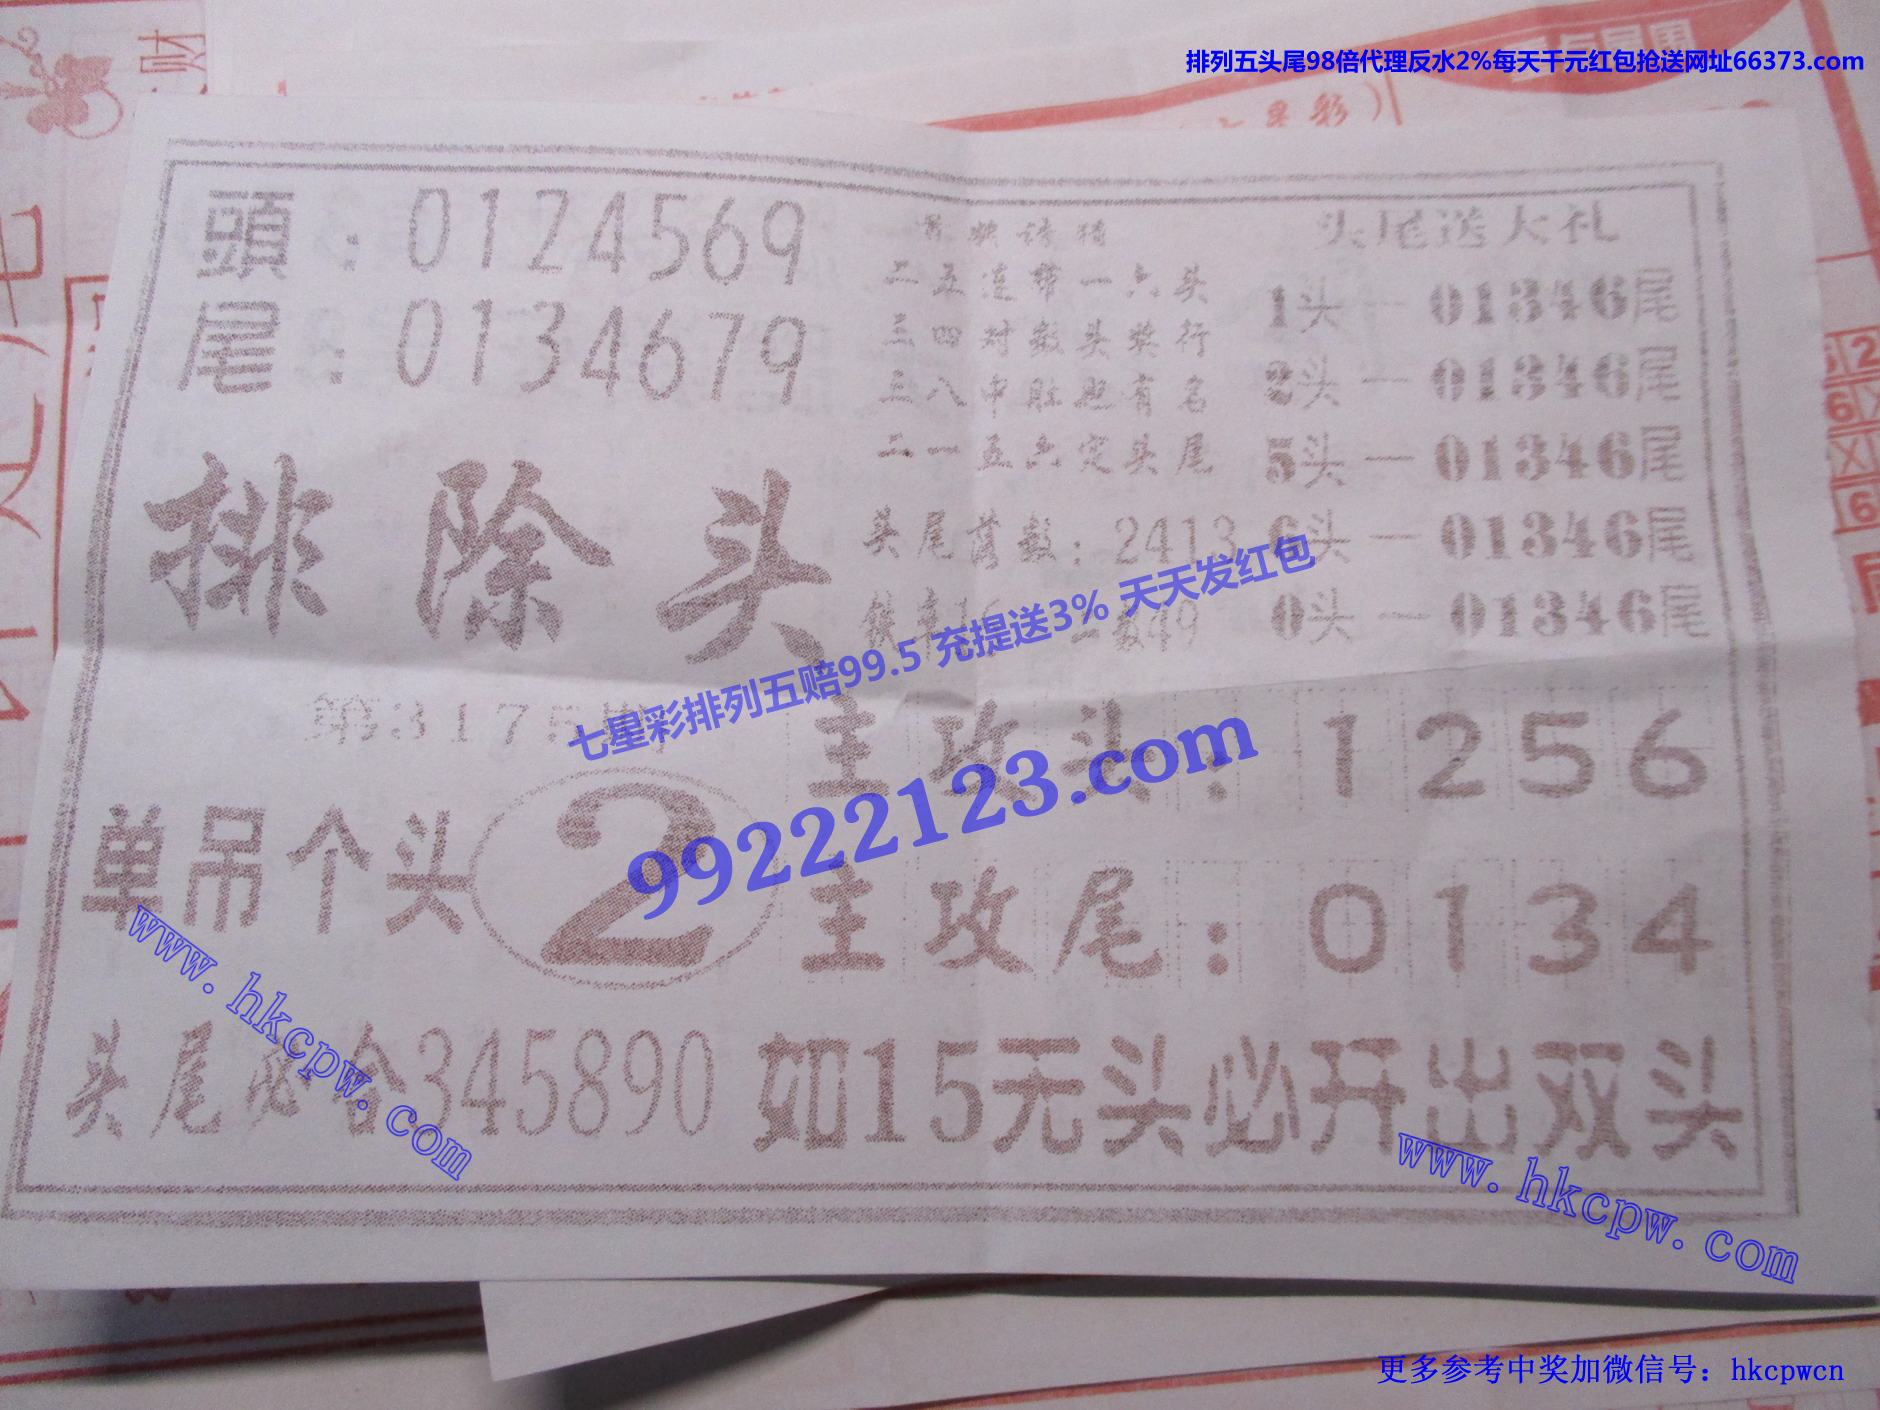 排列五头尾98倍代理反水2%每天千元红包抢送网址66373.com
财
頭：0124569
尾：0134679
排除头
第3175期
单吊个头2
头尾送大礼
二五连带一六头
三四对数头奖行
三八中肚也有名
二一五六定头尾
头尾荐数：2413
1头—01346尾
2头—01346尾
5头—01346尾
6头—01346尾
0头—01346尾
七星彩排列五赔99.5 充提送3% 天天发红包
99222123.com
主攻头：1256
主攻尾：0134
头尾必含345890
如15无头必开出双头
www.hkcpw.com
www.hkcpw.com
更多参考中奖加微信号：hkcpwcn